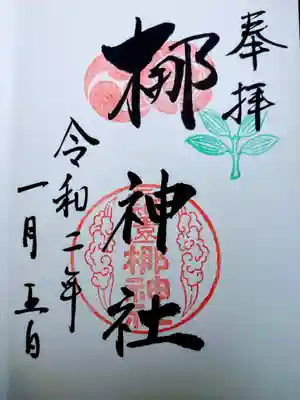 奉拝
梛神社
令和二年
一月五日
梛神社